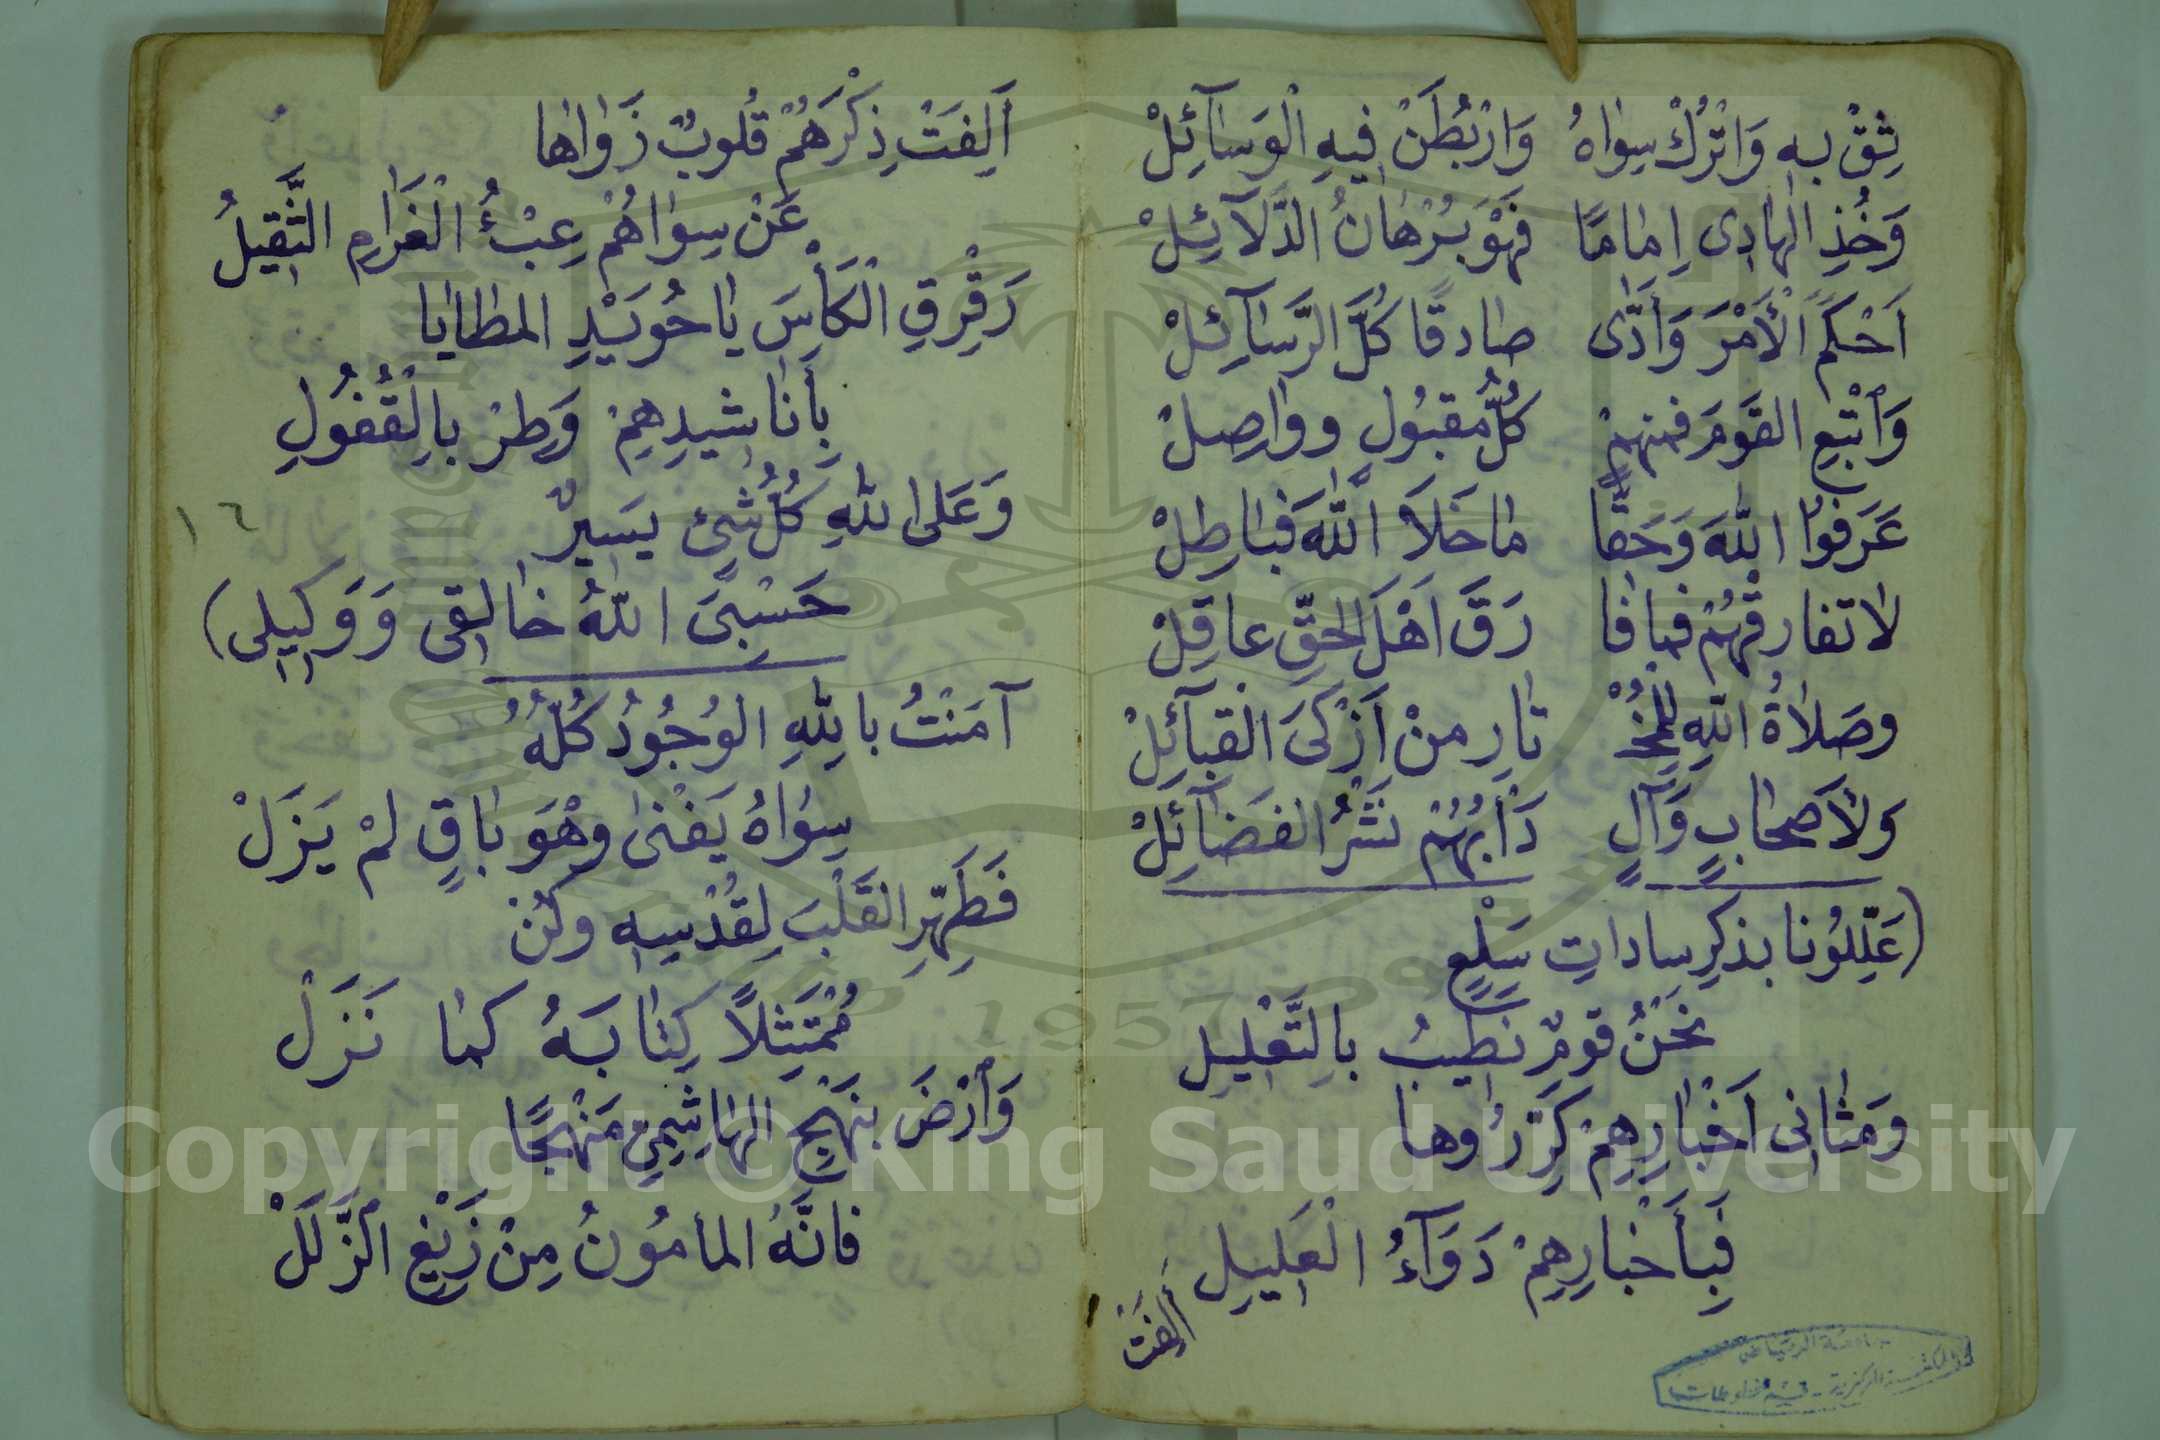 ثِقْ بِهِ وَاتْرُكْ سِوَاهُ وَارْبُطَنْ فِيهِ الْوَسَآئِلْ
وَخُذِ الْهَادِى اِمَامًا فَهْوَ بُرْهَانُ الدَّلَآئِلْ
اَحْكَمَ الْأَمْرَ وَأَدَّى صَادِقًا كُلَّ الرَّسَآئِلْ
وَاتْبَعِ القَوْمَ فَمِنْهِمْ كُلُّ مَقبُولٍ وَوَاصِلْ
عَرَفُوا اللّٰهَ وَحَقًّا مَا خَلَا اللّٰهَ فَبَاطِلْ
لَا تفارِقْهُمْ فَمَافَا رَقَ اَهْلَ الحَقِّ عاقِلْ
وصَلَاةُ اللّٰهِ لِلْمُخْـ ـتَارِ مِنْ اَزْكَى الْقَبَآئِلْ
ولأَصْحَابٍ وَآلٍ دَأْبُهُمْ نَشْرُ الفَضَآئِلْ
(عَلِّلُونا بذكرِ سادَاتِ سَلْعٍ
نَحْنُ قومٌ نطِيبُ بالتَّعْلِيلِ
وَمَثَانِى اَخْبَارِهِمْ كَرِّرُوها
فَبِأَخْبارِهِمْ دَوَآءُ الْعَلِيلِ
أَلِفَتْ
اَلِفَتْ ذِكْرَهُمْ قُلوبٌ زَوَاهَا
عَنْ سِوَاهُمْ عِبْءُ الْغَرَامِ الثَّقِيلُ
رَقْرِقِ الْكَأْسَ يَا حُوَيْدِ المطَايَا
بِأَنَاشيدِهِمْ وَطِرْ بِالْقُفُولِ
وَعَلى اللّٰهِ كُلُّ شَيْءٍ يَسَيرٌ
١٦
حَسْبِىَ اللّٰهُ خَالِقى وَوَكِيلِى)
آمَنْتُ بِاللّٰهِ الوُجُودُ كُلُّهُ
سِوَاهُ يَفْنىٰ وهْوَ باقٍ لمْ يَزَلْ
فَطَهِّرِ القَلْبَ لِقُدْسِهِ وكُنْ
مُمْتَثِلًا كِتَابَهُ كمَا نَزَلْ
وَارْضَ بِنَهْجِ الهَاشِمِيِّ مَنْهَجًا
فانَّهُ المأمُونُ مِنْ زَيْغِ الزَّلَلْ
Copyright © King Saud University
1957